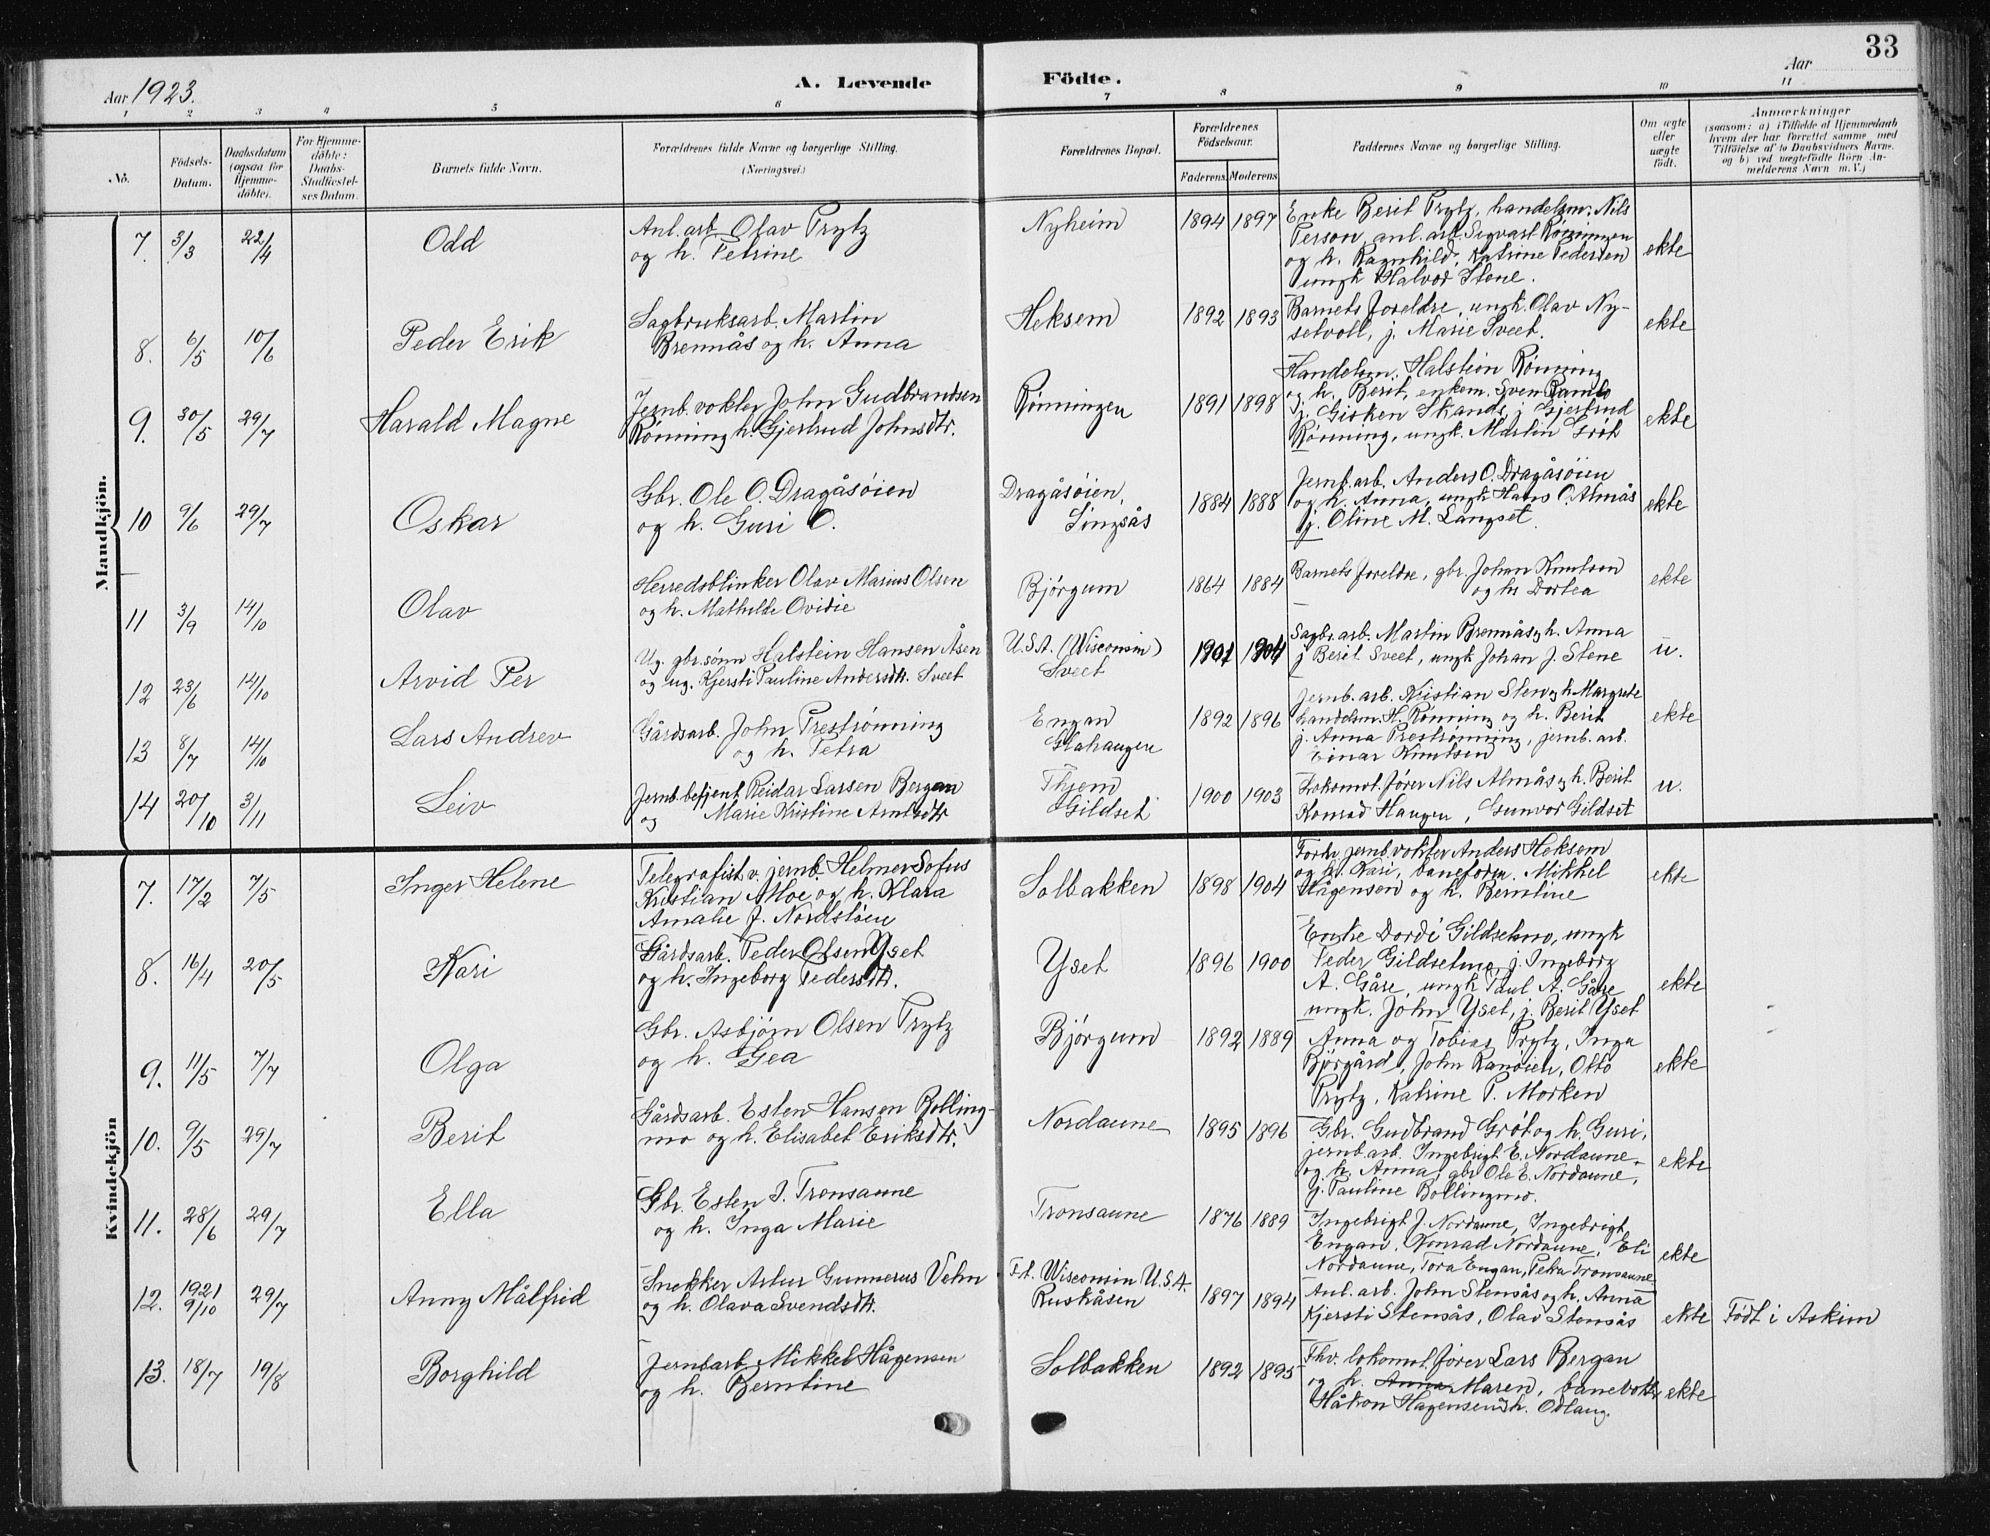 33
Aar 1923.
A. Levende
Födte.
Aar
1 2 3 4 5 6 7 8 9 10 11
No.
Födsels-
Datum.
Daabsdatum
(ogsaa for
Hjemme-
døbte).
For Hjemme-
døbte:
Daabs-
Stadfæstel-
ses Datum.
Barnets fulde Navn.
Forældrenes fulde Navne og borgerlige Stilling.
(Næringsvei.)
Forældrenes Bopæl.
Forældrenes
Fødselsaar.
Faderens. Moderens
Faddernes Navne og borgerlige Stilling.
Om ægte
eller
uægte
født.
Anmærkninger
(saasom: a) i Tilfælde af Hjemmedaab
hvem der har forrettet samme, med
Tilføielse af to Daabsvidners Navne,
og b) ved uægtefødte Börn An-
melderens Navn m. V.)
Mandkjön.
7. 3/3 22/4 Odd
Anl. arb. Olav Prytz
og h. Petrine
Nyheim
1894 1897
Enke Berit Prytz, handelsm. Nils
Person, anl. arb. Sigvart Rønningen
og h. Ragnhild, Katrine Pedersen
ungk Halvor Stene.
ekte
8. 6/5 10/6 Peder Erik
Sagbruksarb. Martin
Brennås og h. Anna
Heksem
1892 1893
Barnets foreldre, ungk. Olav Ny-
setvoll, j. Marie Sveet.
ekte
9. 30/5 29/7 Harald Magne
Jernb. vokter John Gudbrandsen
Rønning h. Gjertrud Johnsdtr.
Rønningen
1891 1898
Handelsm. Halstein Rønning
og h. Berit, enkem. Sven Ramlo
j. Gisken Skands, j. Gjertrud
Rønning, ungk. Martin Grøt
ekte
10 9/6 29/7 Oskar
Gbr. Ole O. Dragåsøien
og h. Guri O.
Dragåsøien,
Singsås
1884 1888
Jernb. arb. Anders O. Dragåsøien
og h. Anna, ungk Hans O. Almås
j. Oline M. Langset.
ekte
11 3/9 14/10 Olav
Herredsblinker Olav Marius Olsen
og h. Mathilde Ovidie
Bjørgum
1864 1884
Barnets foreldre, gbr. Johan Knutson
og h. Dortea
ekte
12 23/6 14/10 Arvid Per
Ug. gbr. sønn Halstein Hansen Åsen
og ug. Kjersti Pauline Andersdtr. Sveet
U.S.A. (Wisconsin)
Sveet
1901 1904
Sagbr. arb. Martin Brennås og h. Anna
j Berit Sveet, ungk Johan J. Stene
u.
13 8/7 14/10 Lars Andrev
Gårdsarb. John Prestrønning
og h. Petra
Engan
Glahaugen
1892 1896
Jernb. arb. Kristian Sten og h Margrete
handelsm. H. Rønning og h. Berit
j. Anna Prestrønning, jernb. arb.
Einar Knutsen
ekte
14 20/10 3/11 Leiv
Jernb. betjent Reidar Larsen Bergem
og Marie Kristine Arntsdtr
Thjem
Gildset
1900 1903
Lokomot. fører Nils Almås og h. Berit
Konrad Haugen, Gunvor Gildset
u.
Kvindekjön
7. 17/2 7/5 Inger Helene
Telegrafist v. jernb. Helmer Sofus
Kristian Moe og h. Klara
Amalie J. Nordsløen
Solbakken
1898 1904
Forhv. jernb. vokter Anders Heksem
og h. Kari, baneform. Mikkel
Hågenson og h. Berntine
ekte
8. 16/4 20/5 Kari
Gårdsarb. Peder Olsen Yset
og h. Ingeborg Pedersdtr.
Yset
1896 1900
Enke Dordi Gildsetmo, ungk
Peder Gildsetmo, j. Ingeborg
A. Gåre, ungk Paul A. Gåre
ungk. John Yset, j. Berit Yset
ekte
9. 11/5 7/7 Olga
Gbr. Asbjørn Olsen Prytz
og h. Gea
Bjørgum
1892 1889
Anna og Tobias Prytz, Inga
Bjørgård, John Ranøien, Otto
Prytz, Katrine P. Morken
ekte
10. 9/5 29/7 Berit
Gårdsarb. Esten Hansen Bolling-
mo og h. Elisabet Eriksdtr.
Nordaune
1895 1896
Gbr. Gudbrand Grøt og h. Guri,
jernb. arb. Ingebrigt E. Nordaune
og h. Anna, gbr Ole E. Nordaune,
j. Pauline Bollingmo.
ekte
11. 28/6 29/7 Ella
Gbr. Esten J. Tronsaune
og h. Inga Marie
Tronsaune
1876 1889
Ingebrigt J. Nordaune, Ingebrigt
Engan, Konrad Nordaune, Eli
Nordaune, Tora Engan, Petra Tronsaune
ekte
12. 1921 9/10 29/7 Anny Målfrid
Snekker Artur Gunnerus Vehn
og h. Olava Svendsdtr.
F.t. Wisconsin U.S.A.
Ruskåsen
1897 1894
Anl. arb. John Stensås og h. Anna
Kjersti Stensås, Olav Stensås
ekte
Født i Askim
13. 18/7 19/8 Borghild
Jernbarb Mikkel Hågensen
og h. Berntine
Solbakken
1892 1895
Fhv. lokomot. fører Lars Bergan
og h. Anna Maren, banevokt.
Håkon Hagensen og h. Odlaug.
ekte